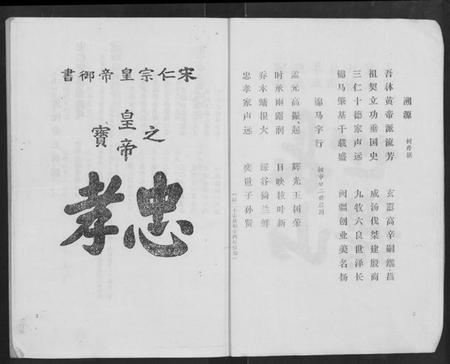 溯源
吾沐黄帝派流芳 玄嚣高辛嗣继昌
祖契立功垂国史 成汤伐桀建殷商
三仁十德家声远 九牧六良世泽长
锦马肇基千载盛 闽疆创业美名扬
锦马字行
孟元高振起 辉光玉树荣
时承雨露润 日映枝叶新
乔木蟠根大 深谷猗兰
忠孝家声远 奕世子孙贤
宋仁宗皇帝御書
皇帝之寶
忠孝